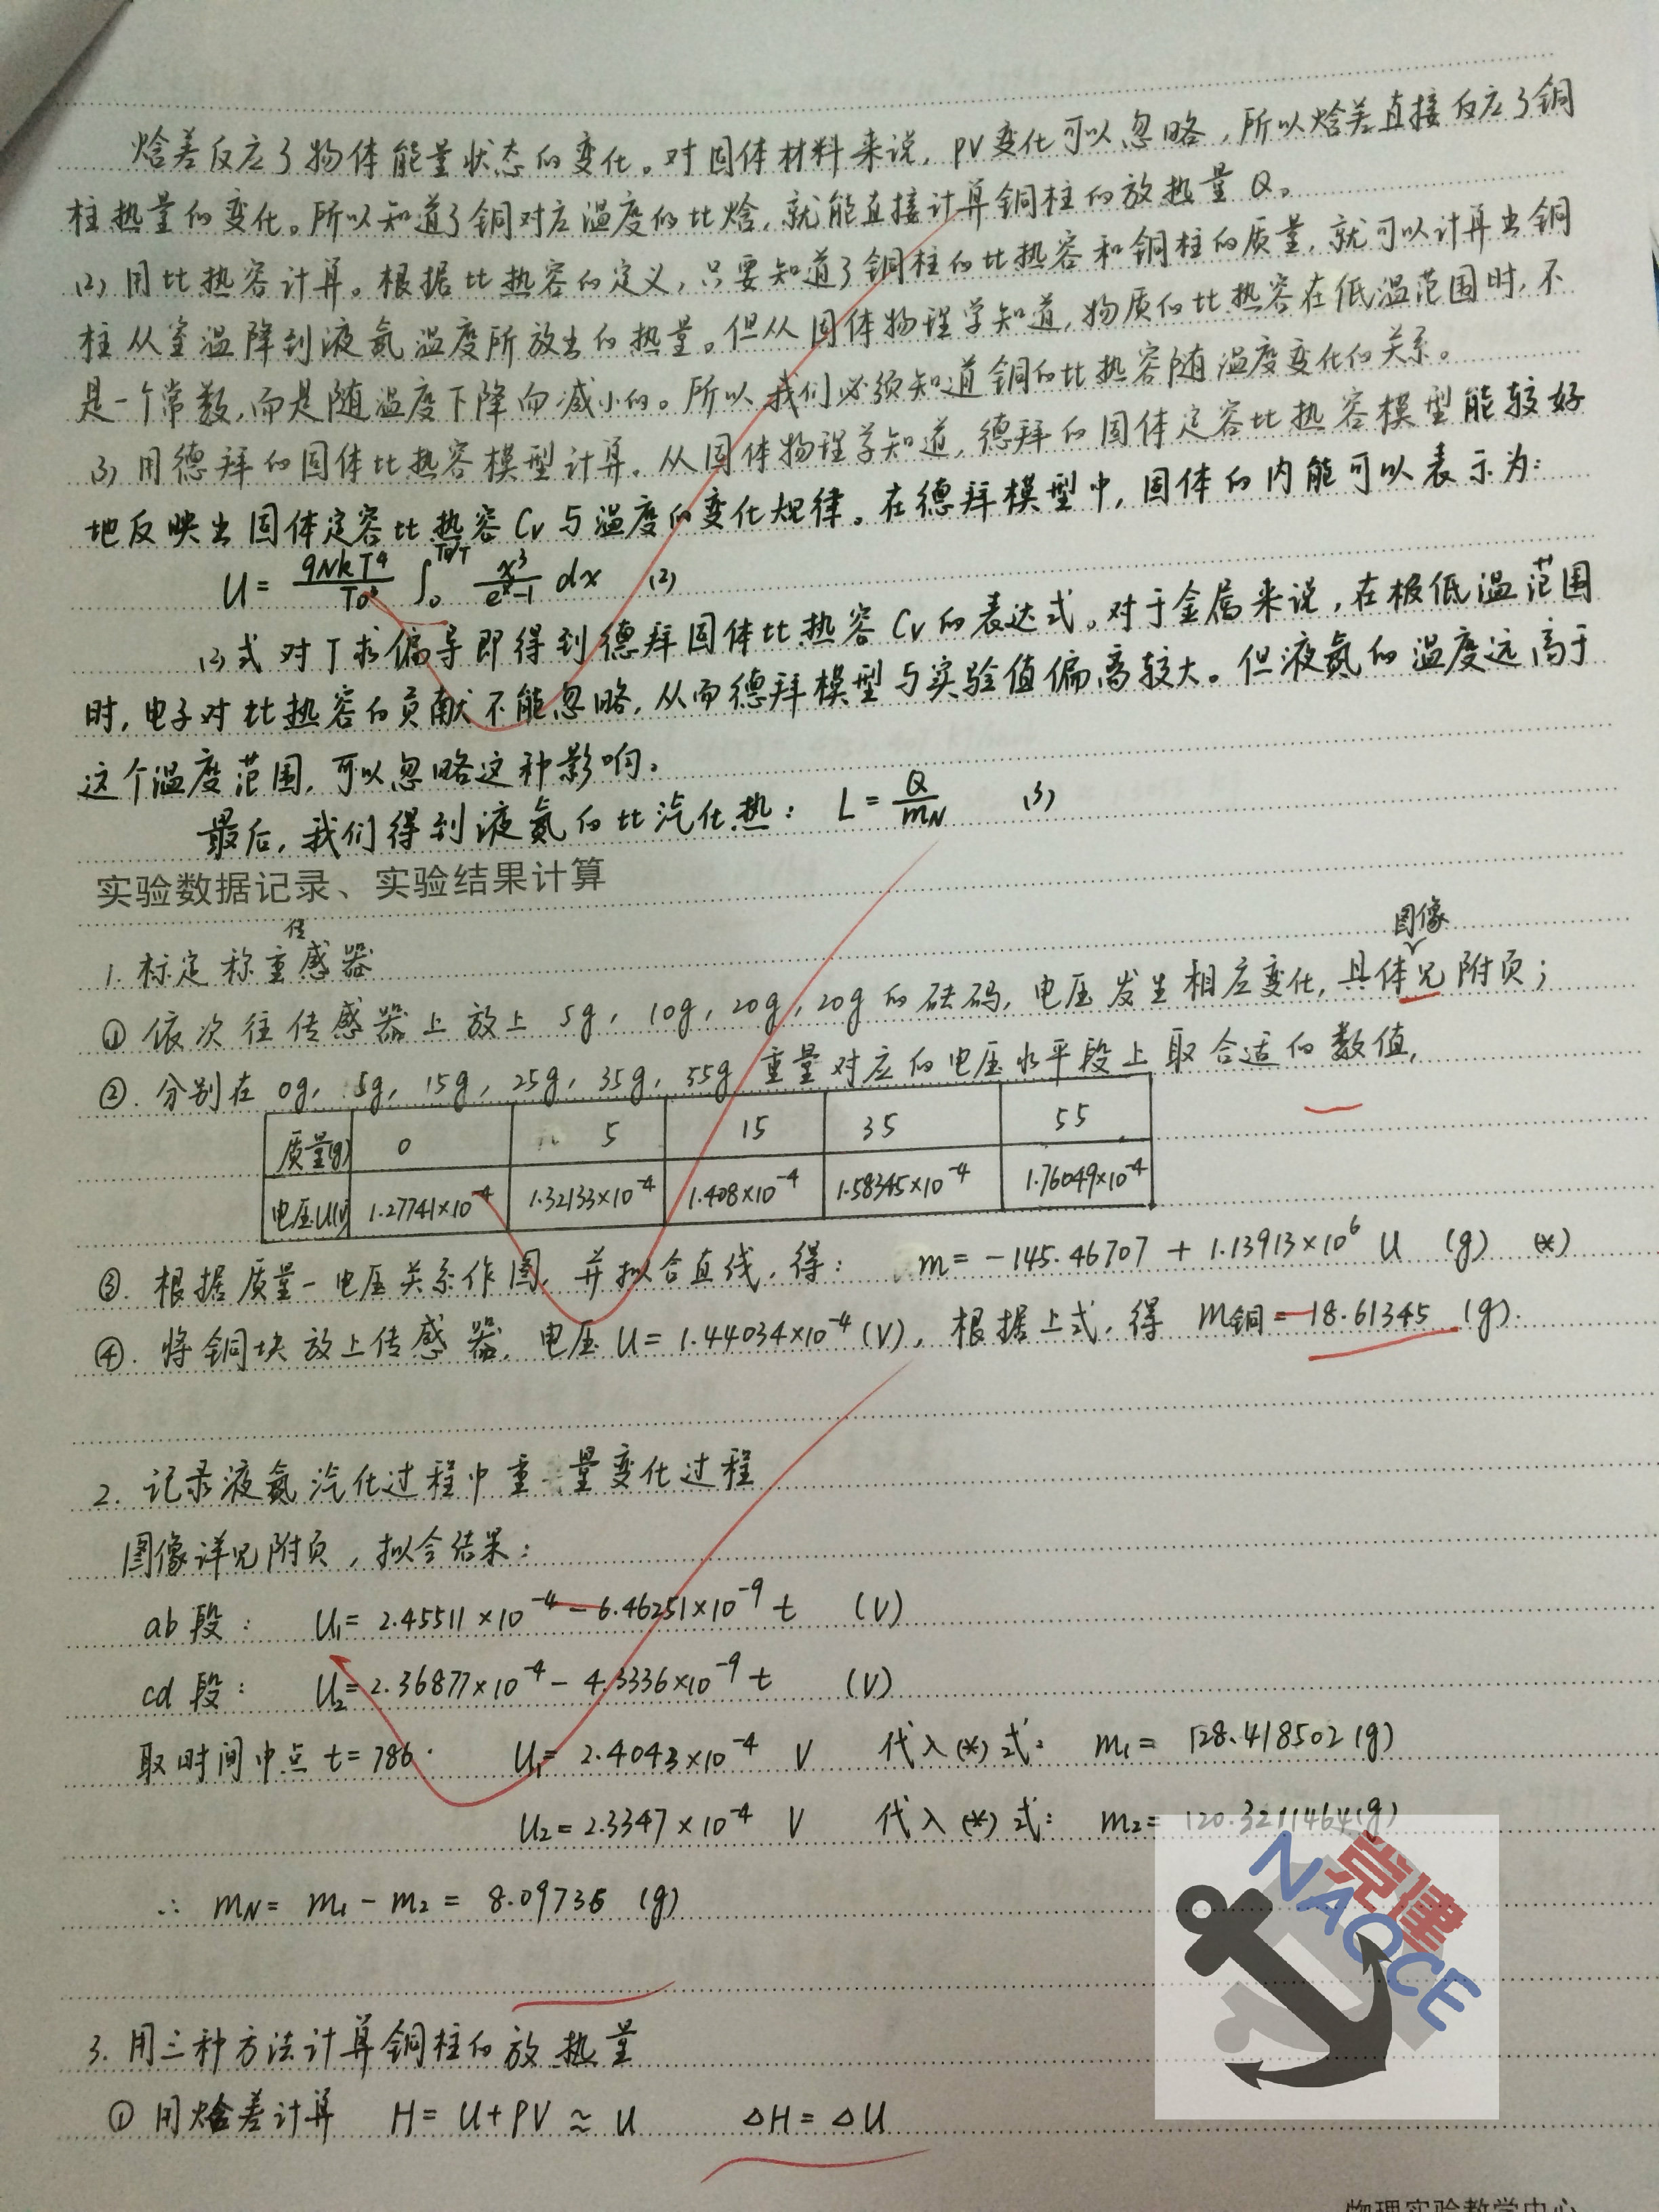 焓差反应了物体能量状态的变化。对固体材料来说，PV变化可以忽略，所以焓差直接反应了铜
柱热量的变化。所以知道了铜对应温度的比焓，就能直接计算铜柱的放热量Q。
(2) 用比热容计算。根据比热容的定义，只要知道了铜柱的比热容和铜柱的质量，就可以计算出铜
柱从室温降到液氮温度所放出的热量。但从固体物理学知道，物质的比热容在低温范围时，不
是一个常数，而是随温度下降而减小的。所以我们必须知道铜的比热容随温度变化的关系。
(3) 用德拜的固体比热容模型计算。从固体物理学知道，德拜的固体定容比热容模型能较好
地反映出固体定容比热容Cv与温度的变化规律。在德拜模型中，固体的内能可以表示为：
U = 9NkT⁴/T_θ³ ∫₀^{T_θ/T} x³/(eˣ-1) dx (2)
(2)式对T求偏导即得到德拜固体比热容Cv的表达式。对于金属来说，在极低温范围
时，电子对比热容的贡献不能忽略，从而德拜模型与实验值偏离较大。但液氮的温度远高于
这个温度范围，可以忽略这种影响。
最后，我们得到液氮的比汽化热： L = Q/m_N (3)
实验数据记录、实验结果计算
1. 标定称重传感器
① 依次往传感器上放上 5g，10g，20g，20g 的砝码，电压发生相应变化，具体图像见附页；
②. 分别在 0g，5g，15g，25g，35g，55g 重量对应的电压水平段上取合适的数值，
质量(g) 0 5 15 35 55
电压U(V) 1.27741×10⁻⁴ 1.32133×10⁻⁴ 1.408×10⁻⁴ 1.58345×10⁻⁴ 1.76049×10⁻⁴
③. 根据质量-电压关系作图，并拟合直线，得： m = -145.46707 + 1.13913×10⁶ U (g) (*)
④. 将铜块放上传感器，电压 U = 1.44034×10⁻⁴ (V)，根据上式，得 m铜 = 18.61345 (g).
2. 记录液氮汽化过程中重量变化过程
图像详见附页，拟合结果：
ab段： U₁ = 2.45511×10⁻⁴ - 6.46251×10⁻⁹ t (V)
cd段： U₂ = 2.36877×10⁻⁴ - 4.3336×10⁻⁹ t (V)
取时间中点 t = 786. U₁ = 2.4043×10⁻⁴ V 代入(*)式： m₁ = 128.418502 (g)
U₂ = 2.3347×10⁻⁴ V 代入(*)式： m₂ = 120.3211464 (g)
∴ m_N = m₁ - m₂ = 8.09736 (g)
3. 用三种方法计算铜柱的放热量
① 用焓差计算 H = U+PV ≈ U ΔH = ΔU
党建
NAOCE
物理实验教学中心